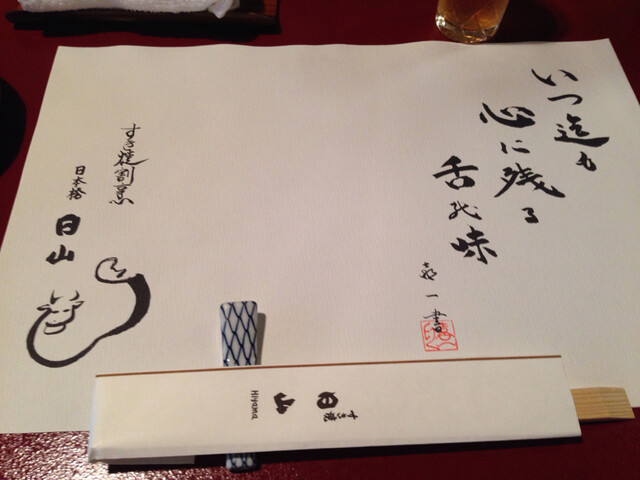 いつ迄も
心に残る
舌の味
喜一書
すき焼割烹
日本橋
日山
すき焼
日山
Hiyama